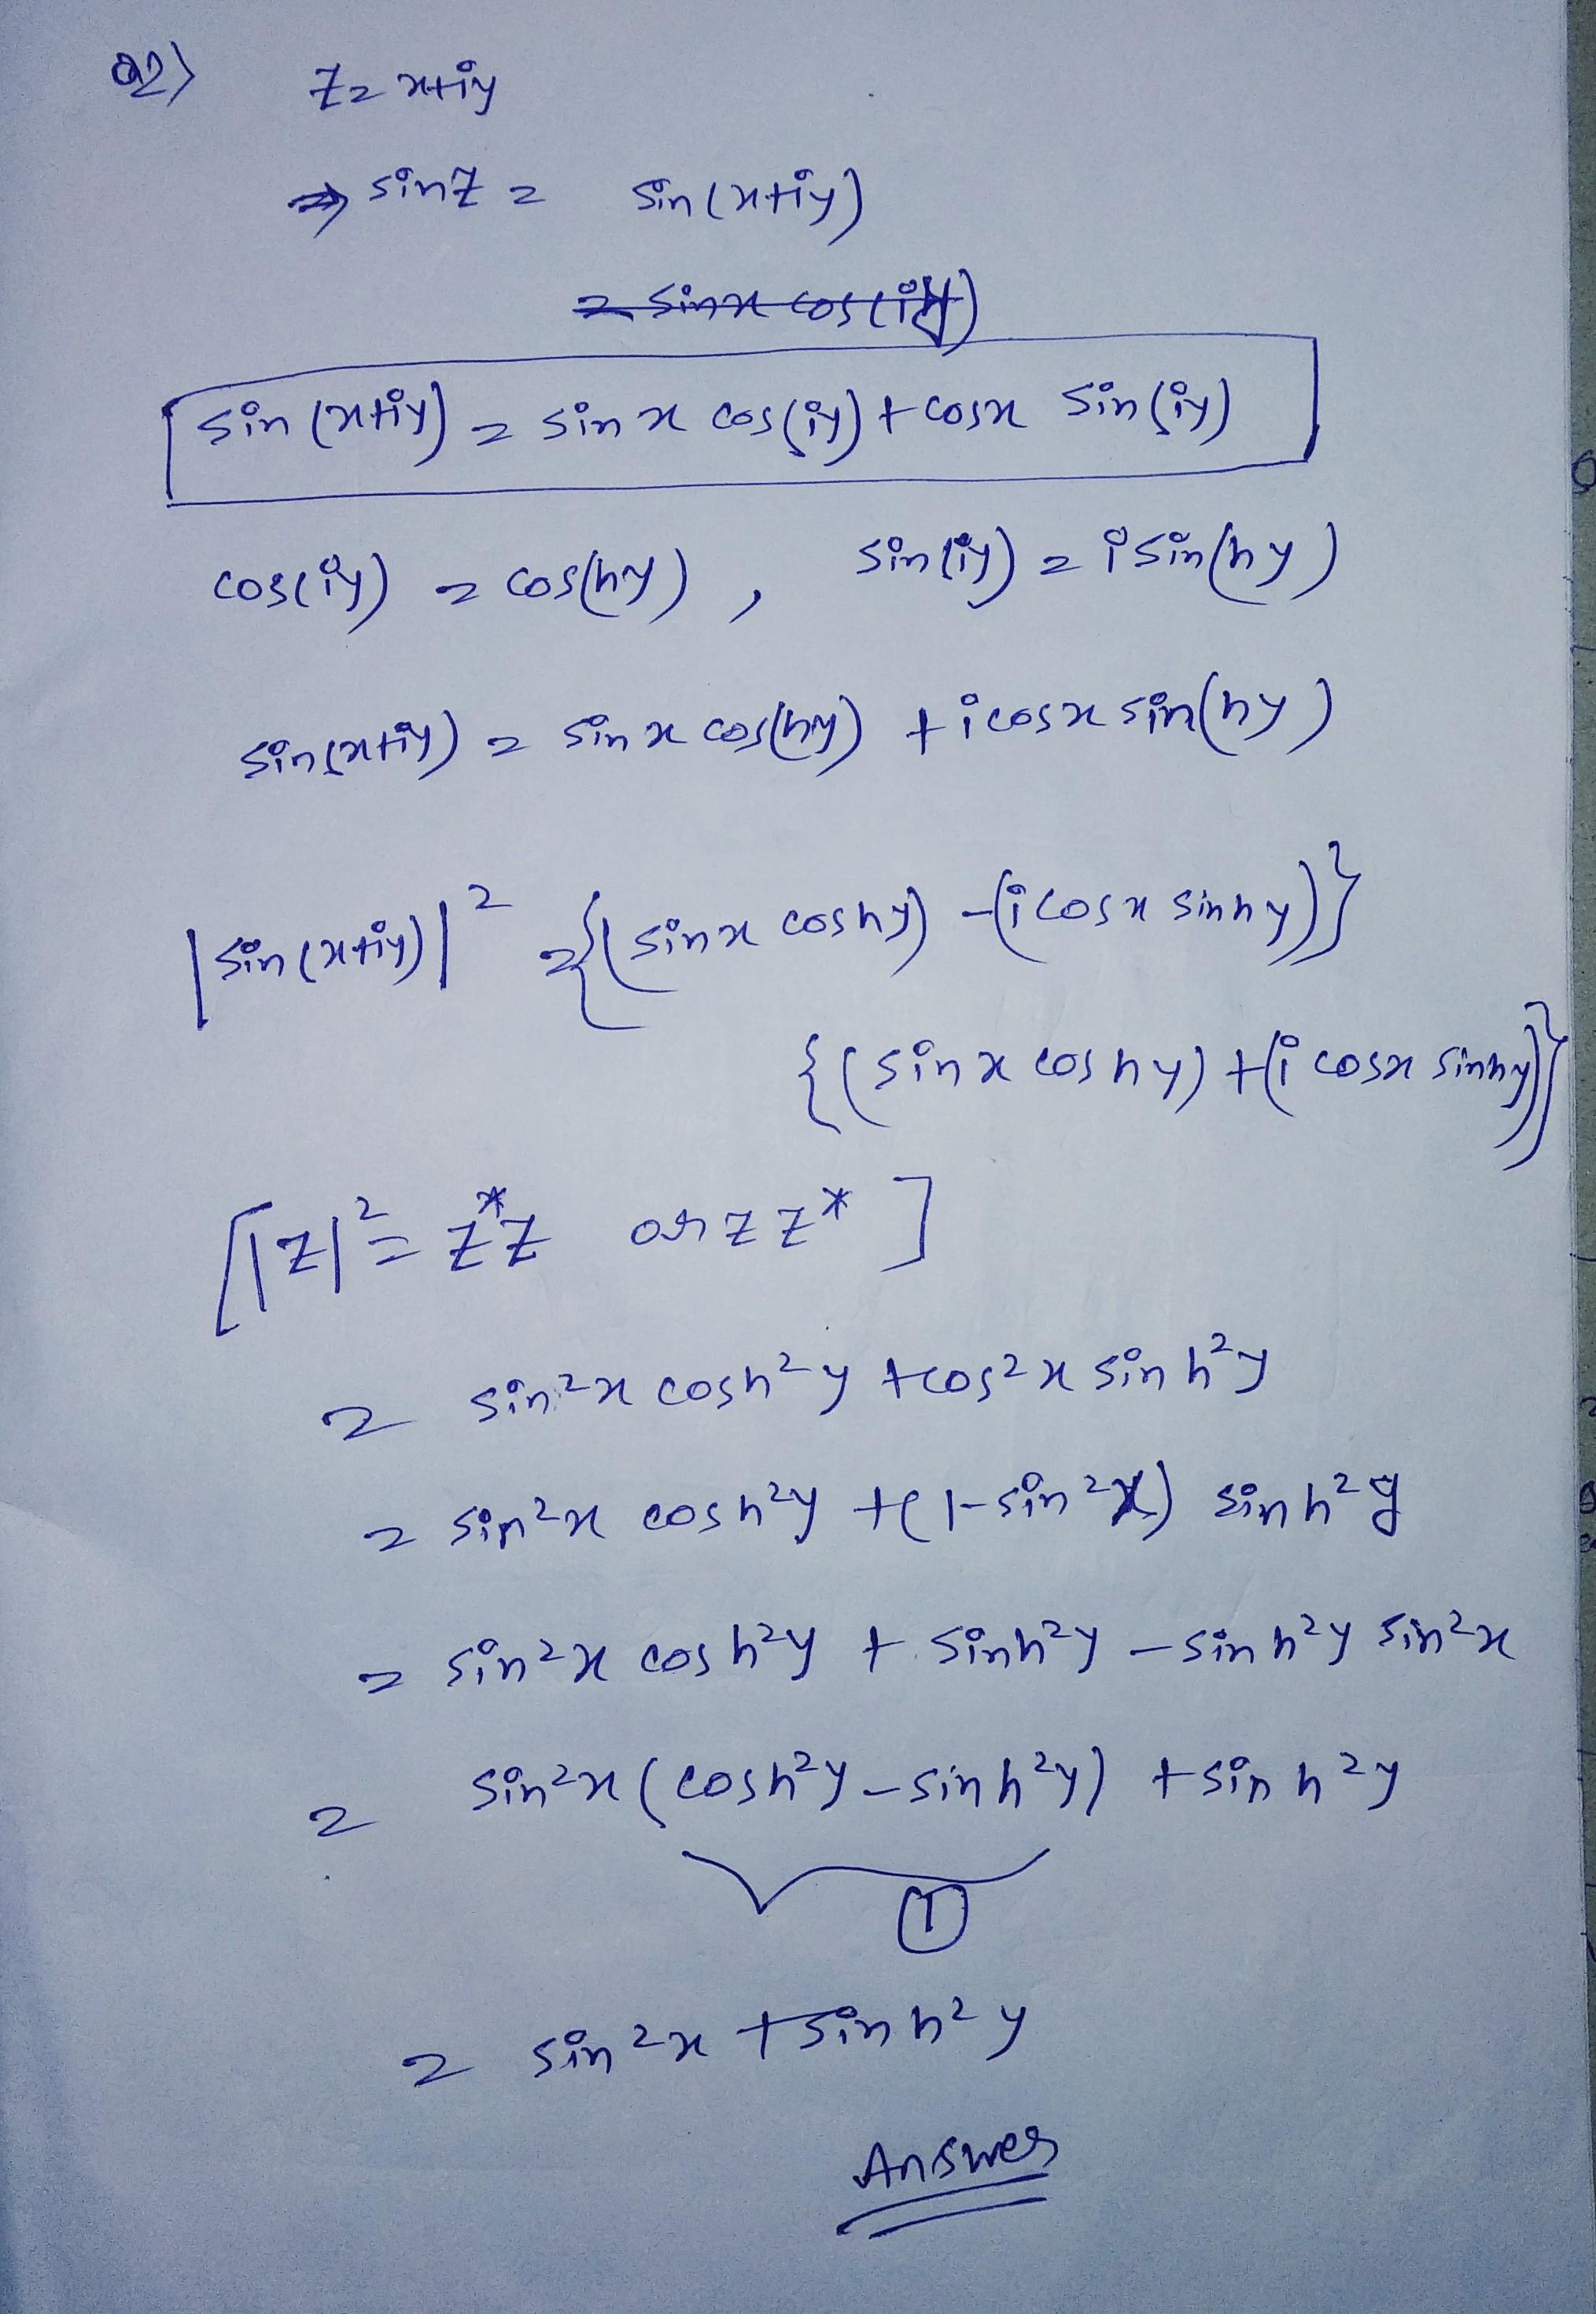 Q2) z = x+iy
⇒ sinz = sin(x+iy)
= sinx cos(iy)
sin(x+iy) = sin x cos(iy) + cosx sin(iy)
cos(iy) = cos(hy) , sin(iy) = i sin(hy)
sin(x+iy) = sin x cos(hy) + i cosx sin(hy)
|sin(x+iy)|² = {(sinx coshy) - (i cosx sinhy)}
{(sinx coshy) + (i cosx sinhy)}
[|z|² = z*z or z z*]
= sin²x cosh²y + cos²x sinh²y
= sin²x cosh²y + (1-sin²x) sinh²y
= sin²x cosh²y + sinh²y - sinh²y sin²x
= sin²x (cosh²y - sinh²y) + sinh²y
1
= sin²x + sinh²y
Answer